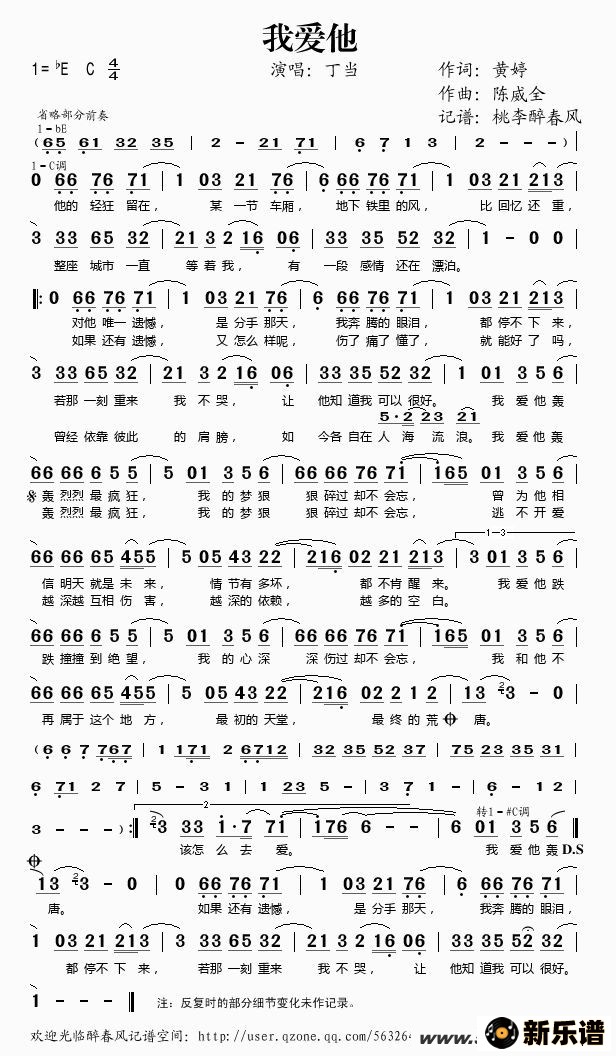 我爱他
1= ♭E C 4/4 演唱：丁当 作词：黄婷
作曲：陈威全
省略部分前奏 记谱：桃李醉春风
1-bE
(65 61 32 35 | 2 - 21 71 | 6 7 1 3 | 2 - - -)
1-C调
0 66 76 71 | 1 03 21 76 | 6 66 76 71 | 1 03 21 213
他的 轻狂 留在， 某 一节 车厢， 地下 铁里 的风， 比 回忆 还 重，
3 33 65 32 | 21 3 2 16 06 | 33 35 52 32 | 1 - 0 0
整座 城市 一直 等 着 我， 有 一段 感情 还在 漂泊。
‖: 0 66 76 71 | 1 03 21 76 | 6 66 76 71 | 1 03 21 213
对他 唯一 遗憾， 是 分手 那天， 我奔 腾的 眼泪， 都 停不 下 来，
如果 还有 遗憾， 又 怎么 样呢， 伤了 痛了 懂了， 就 能好 了 吗，
3 33 65 32 | 21 3 2 16 06 | 33 35 52 32 | 1 01 3 5 6
若那 一刻 重来 我 不 哭， 让 他知 道我 可以 很好。 我 爱 他 轰
5·2 23 21
曾经 依靠 彼此 的 肩 膀， 如 今各 自在 人 海 流 浪。 我 爱 他 轰
66 66 6 5 5 | 5 01 3 5 6 | 66 66 76 71 | 165 01 3 5 6
𝄋 轰 烈烈 最 疯 狂， 我 的 梦 狠 狠 碎过 却不 会忘， 曾 为 他 相
轰 烈烈 最 疯 狂， 我 的 梦 狠 狠 碎过 却不 会忘， 逃 不 开 爱
1-3
66 66 65 455 | 5 05 43 22 | 216 02 21 213 | 3 01 3 5 6
信 明天 就是 未 来， 情 节有 多坏， 都 不肯 醒 来。 我 爱 他 跌
越 深越 互相 伤 害， 越 深的 依赖， 越 多的 空 白。
66 66 6 5 5 | 5 01 3 5 6 | 66 66 76 71 | 165 01 3 5 6
跌 撞撞 到 绝 望， 我 的 心 深 深 伤过 却不 会忘， 我 和 他 不
66 66 65 455 | 5 05 43 22 | 216 02 2 1 2 | 13 3 - 0
再 属于 这个 地 方， 最 初的 天堂， 最 终 的 荒 唐。
(6 6 7 767 | 1 171 2 6712 | 32 35 52 37 | 75 23 35 31 |
6 71 2 7 | 5 - 3 1 | 1 23 5 - | 3 7 1 - | 6 - 12
2 转1-#C调
3 - - ):‖ 3 33 1·7 71 | 176 6 - - | 6 01 3 5 6 ‖
该怎 么 去 爱。 我 爱 他 轰 D.S
13 3 - 0 | 0 66 76 71 | 1 03 21 76 | 6 66 76 71
唐。 如果 还有 遗憾， 是 分手 那天， 我奔 腾的 眼泪，
1 03 21 213 | 3 33 65 32 | 21 3 2 16 06 | 33 35 52 32
都 停不 下 来， 若那 一刻 重来 我 不 哭， 让 他知 道我 可以 很好。
1 - - ‖ 注：反复时的部分细节变化未作记录。
欢迎光临醉春风记谱空间：http://user.qzone.qq.com/56326 www. 新乐谱